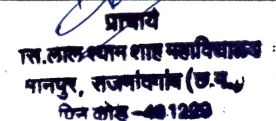 प्राचार्य
शास. लाल श्याम शाह महाविद्यालय
मानपुर, राजनांदगांव (छ.ग.)
पिन कोड -491229